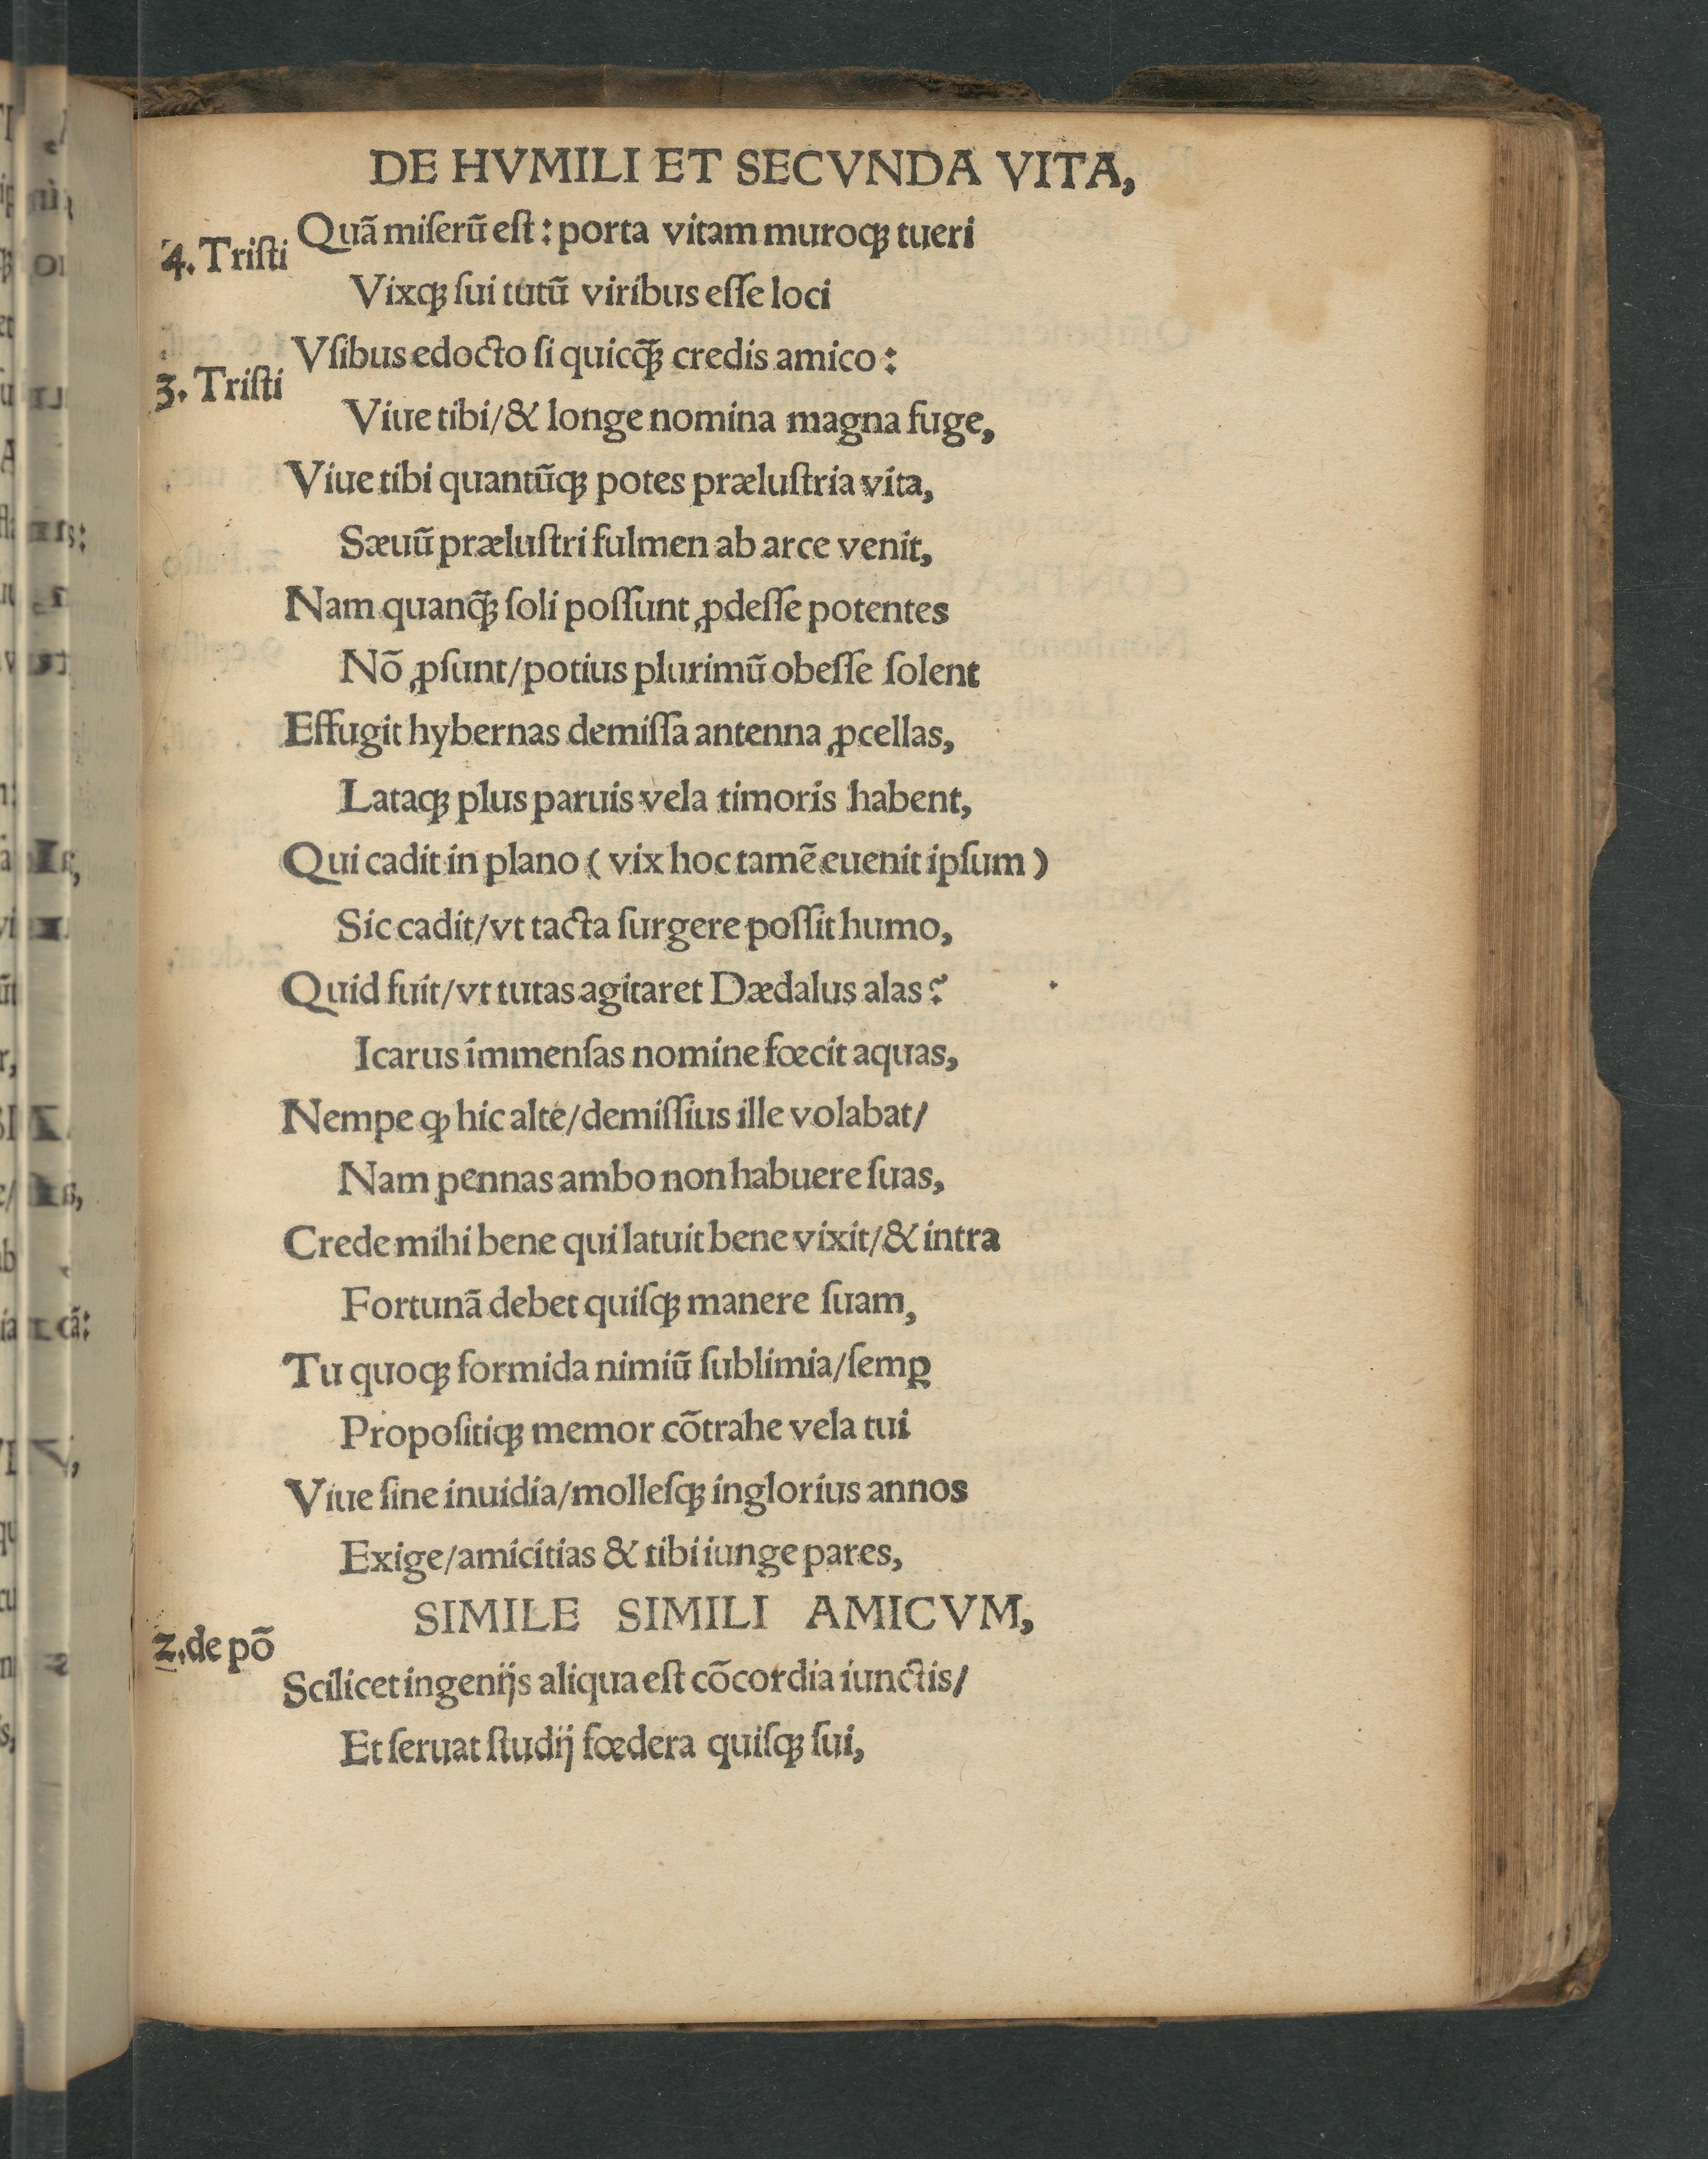 DE HVMILI ET SECVNDA VITA,
4. Triſti
Quã miſerũ eſt : porta vitam muroqꝫ tueri
Vixqꝫ ſui tutũ viribus eſſe loci
3. Triſti
Vſibus edocto ſi quicq̃ꝫ credis amico :
Viue tibi/& longe nomina magna fuge,
Viue tibi quantũqꝫ potes præluſtria vita,
Sæuũ præluſtri fulmen ab arce venit,
Nam quanq̃ꝫ ſoli poſſunt ꝓdeſſe potentes
Nõ ꝓſunt/potius plurimũ obeſſe ſolent
Effugit hybernas demiſſa antenna ꝓcellas,
Lataqꝫ plus paruis vela timoris habent,
Qui cadit in plano ( vix hoc tamẽ euenit ipſum )
Sic cadit/vt tacta ſurgere poſſit humo,
Quid fuit/vt tutas agitaret Dædalus alas?
Icarus immenſas nomine fœcit aquas,
Nempe ꝙ hic alte/demiſſius ille volabat/
Nam pennas ambo non habuere ſuas,
Crede mihi bene qui latuit bene vixit/& intra
Fortunã debet quiſqꝫ manere ſuam,
Tu quoqꝫ formida nimiũ ſublimia/ſemꝑ
Propoſitiqꝫ memor cõtrahe vela tui
Viue ſine inuidia/molleſqꝫ inglorius annos
Exige/amicitias & tibi iunge pares,
SIMILE SIMILI AMICVM,
2. de põ
Scilicet ingenijs aliqua eſt cõcordia iunctis/
Et ſeruat ſtudij fœdera quiſqꝫ ſui,